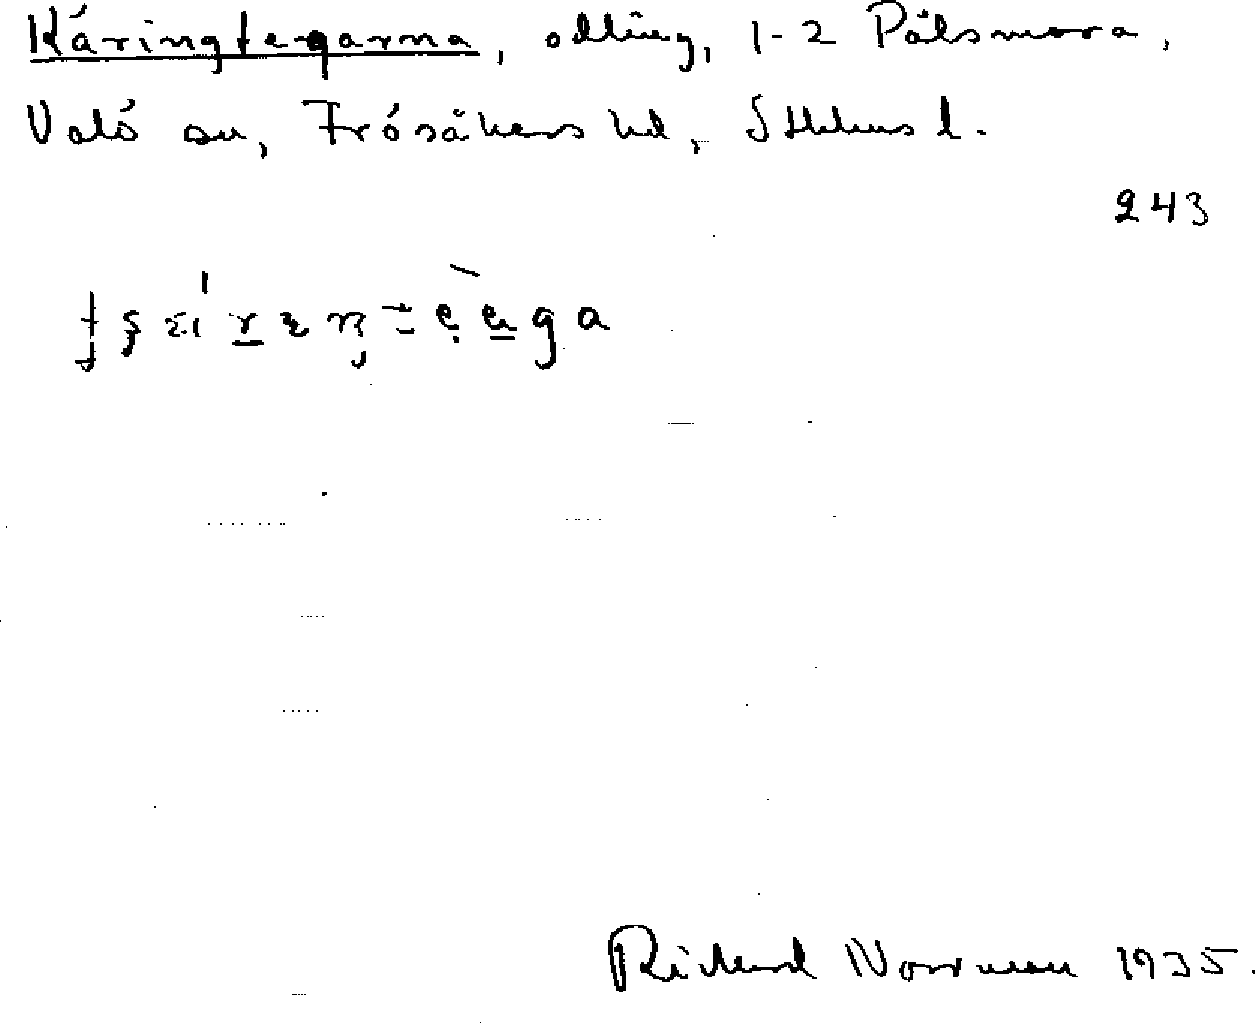 Käringtegarna, odling, 1-2 Pålsmora,
Valö sn, Frösåkers hd, Sthlms l.
243
Richard Norrman 1935.